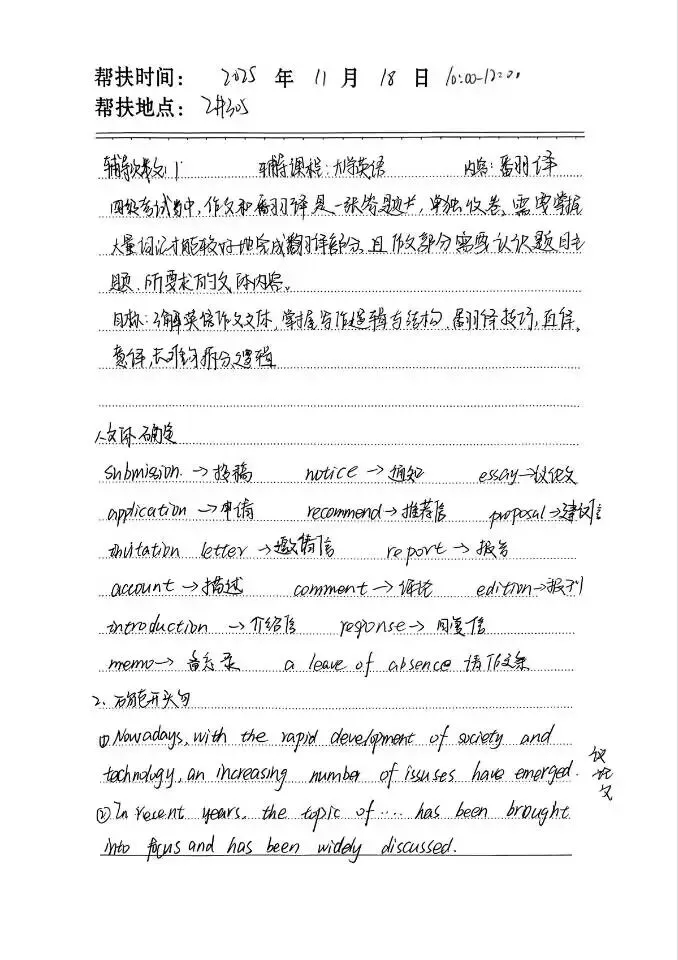 帮扶时间： 2025 年 11 月 18 日 10:00-12:20
帮扶地点： 2井305
辅导次数：1 辅导课程：大学英语 内容：翻译
四级考试中，作文和翻译是一张答题卡，单独收卷，需要掌握
大量词汇才能较好地完成翻译部分，且作文部分需要认识题目主
题，所要求的文体内容。
目标：了解英语作文文体，掌握写作逻辑与结构，翻译技巧，直译，
意译，长难句拆分逻辑
1、文体确定
submission. →投稿 notice →通知 essay→议论文
application →申请 recommend→推荐信 proposal→建议信
invitation letter →邀请信 report → 报告
account →描述 comment → 评论 edition→报刊
introduction →介绍信 response→ 回复信
memo→ 备忘录 a leave of absence 请假条
2、万能开头句
① Nowadays, with the rapid development of society and
technology, an increasing number of issuses have emerged.
议论文
② In recent years, the topic of .... has been brought
into focus and has been widely discussed.